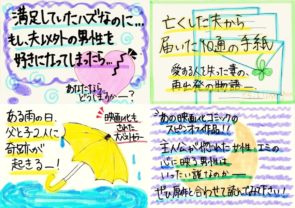 満足していたハズなのに…
もし、夫以外の男性を
好きになってしまったら…
あなたなら
どうしますか―？
亡くした夫から
届いた10通の手紙
愛する人を失った妻の、
再出発の物語―
ある雨の日、
父と子2人に
奇跡が
起きる―！
映画化も
された
大ベストセラー
あの映画化コミックの
スピンオフ作品！！
主人公が惚れた女性・エミの
心に映る男性は
いったい誰なのか―
ぜひ原作と合わせて読んでみて下さい！